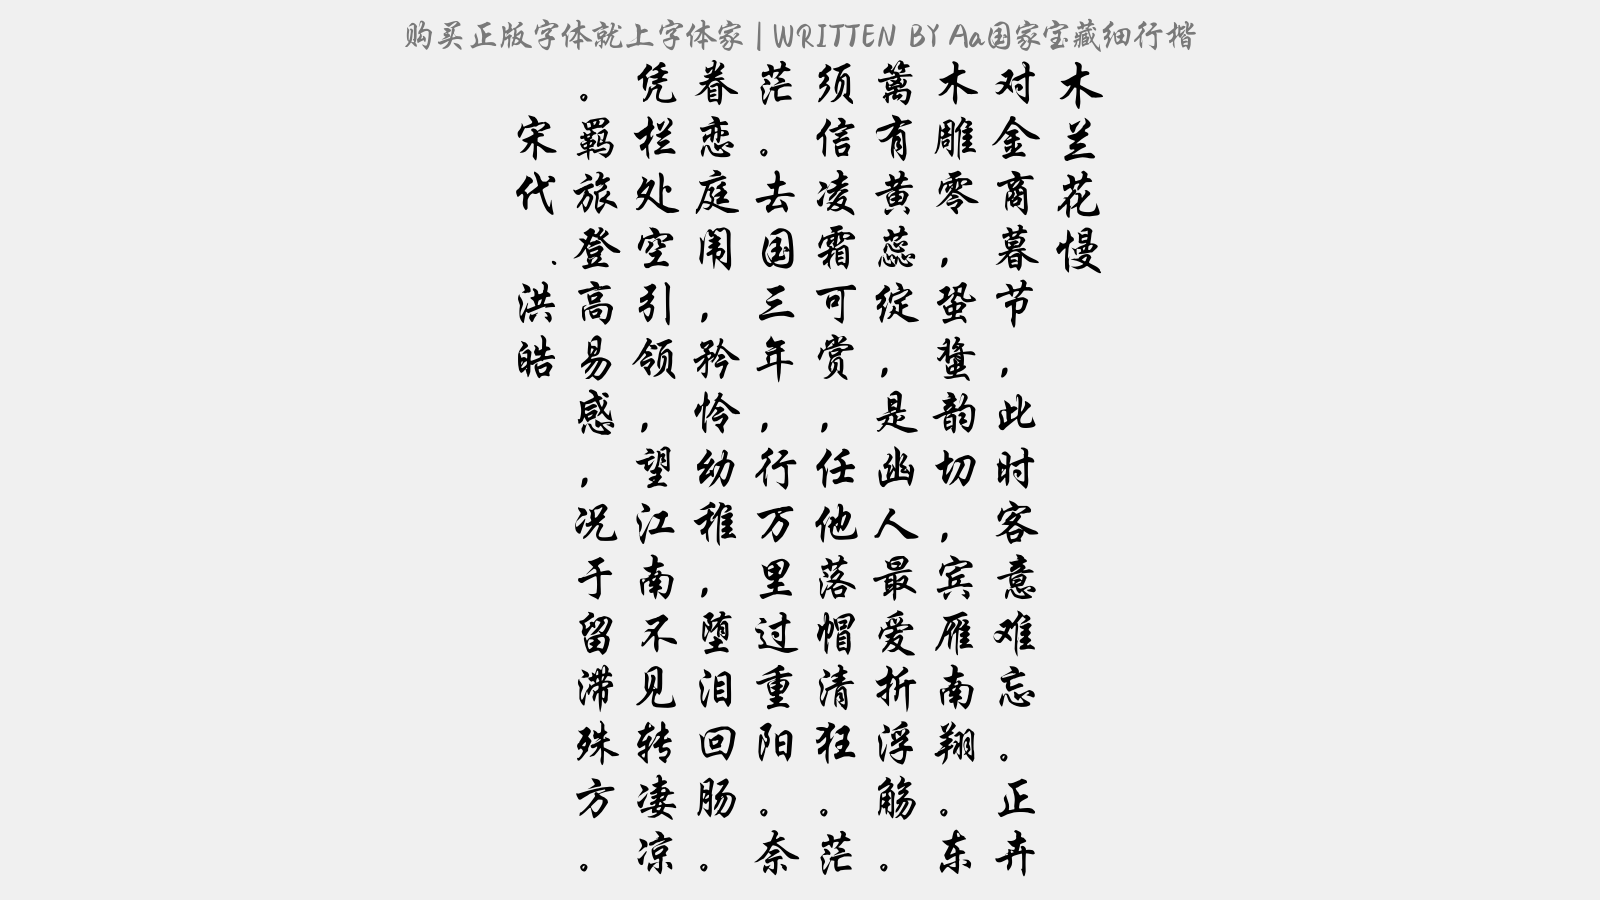 购买正版字体就上字体家 | WRITTEN BY Aa国家宝藏细行楷
木兰花慢
对金商暮节，此时客意难忘。正卉
木雕零，蛩螀韵切，宾雁南翔。东
篱有黄蕊绽，是幽人最爱折浮觞。
须信凌霜可赏，任他落帽清狂。茫
茫。去国三年，行万里过重阳。奈
眷恋庭闱，矜怜幼稚，堕泪回肠。
凭栏处空引领，望江南不见转凄凉
。羁旅登高易感，况于留滞殊方。
宋代.洪皓